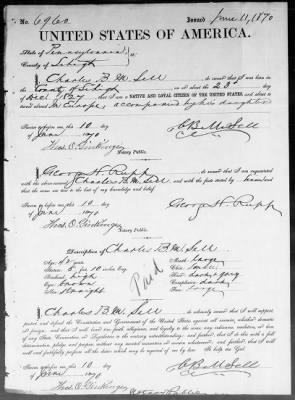 No. 6960 Issued June 11, 1870
UNITED STATES OF AMERICA.
State of Pennsylvania
County of Lehigh
I Charles B. M. Sell, do swear that I was born in the
County of Lehigh, on or about the 28 day of
Dec. 1827; that I am a NATIVE AND LOYAL CITIZEN OF THE UNITED STATES, and about to
travel abroad in Europe accompanied by his daughter
Sworn to before me this 10 day
of June 1870 C B M Sell
Notary Public.
I George H. Rupp, do swear that I am acquainted
with the above-named Charles B. M. Sell, and with the facts stated by him and
that the same are true to the best of my knowledge and belief.
Sworn to before me this 10 day
of June 1870 George H. Rupp
Notary Public.
Description of Charles B. M. Sell
Age: 42 years Mouth: large
Stature: 5 feet 10 inches, Eng. Chin: small
Forehead: high Hair: dark gray
Eyes: brown Complexion: dark
Nose: straight Face: long
Paid
I Charles B. M. Sell, do solemnly swear that I will support,
protect, and defend the Constitution and Government of the United States against all enemies, whether domestic
or foreign; and that I will bear true faith, allegiance, and loyalty to the same, any ordinance, resolution, or law
of any State, Convention, or Legislature to the contrary notwithstanding; and further, that I do this with a full
determination, pledge, and purpose, without any mental reservation or evasion whatsoever; and further, that I will
well and faithfully perform all the duties which may be required of me by law: So help me God.
Sworn to before me this 10 day
of June 1870 C B M Sell
Notary Public